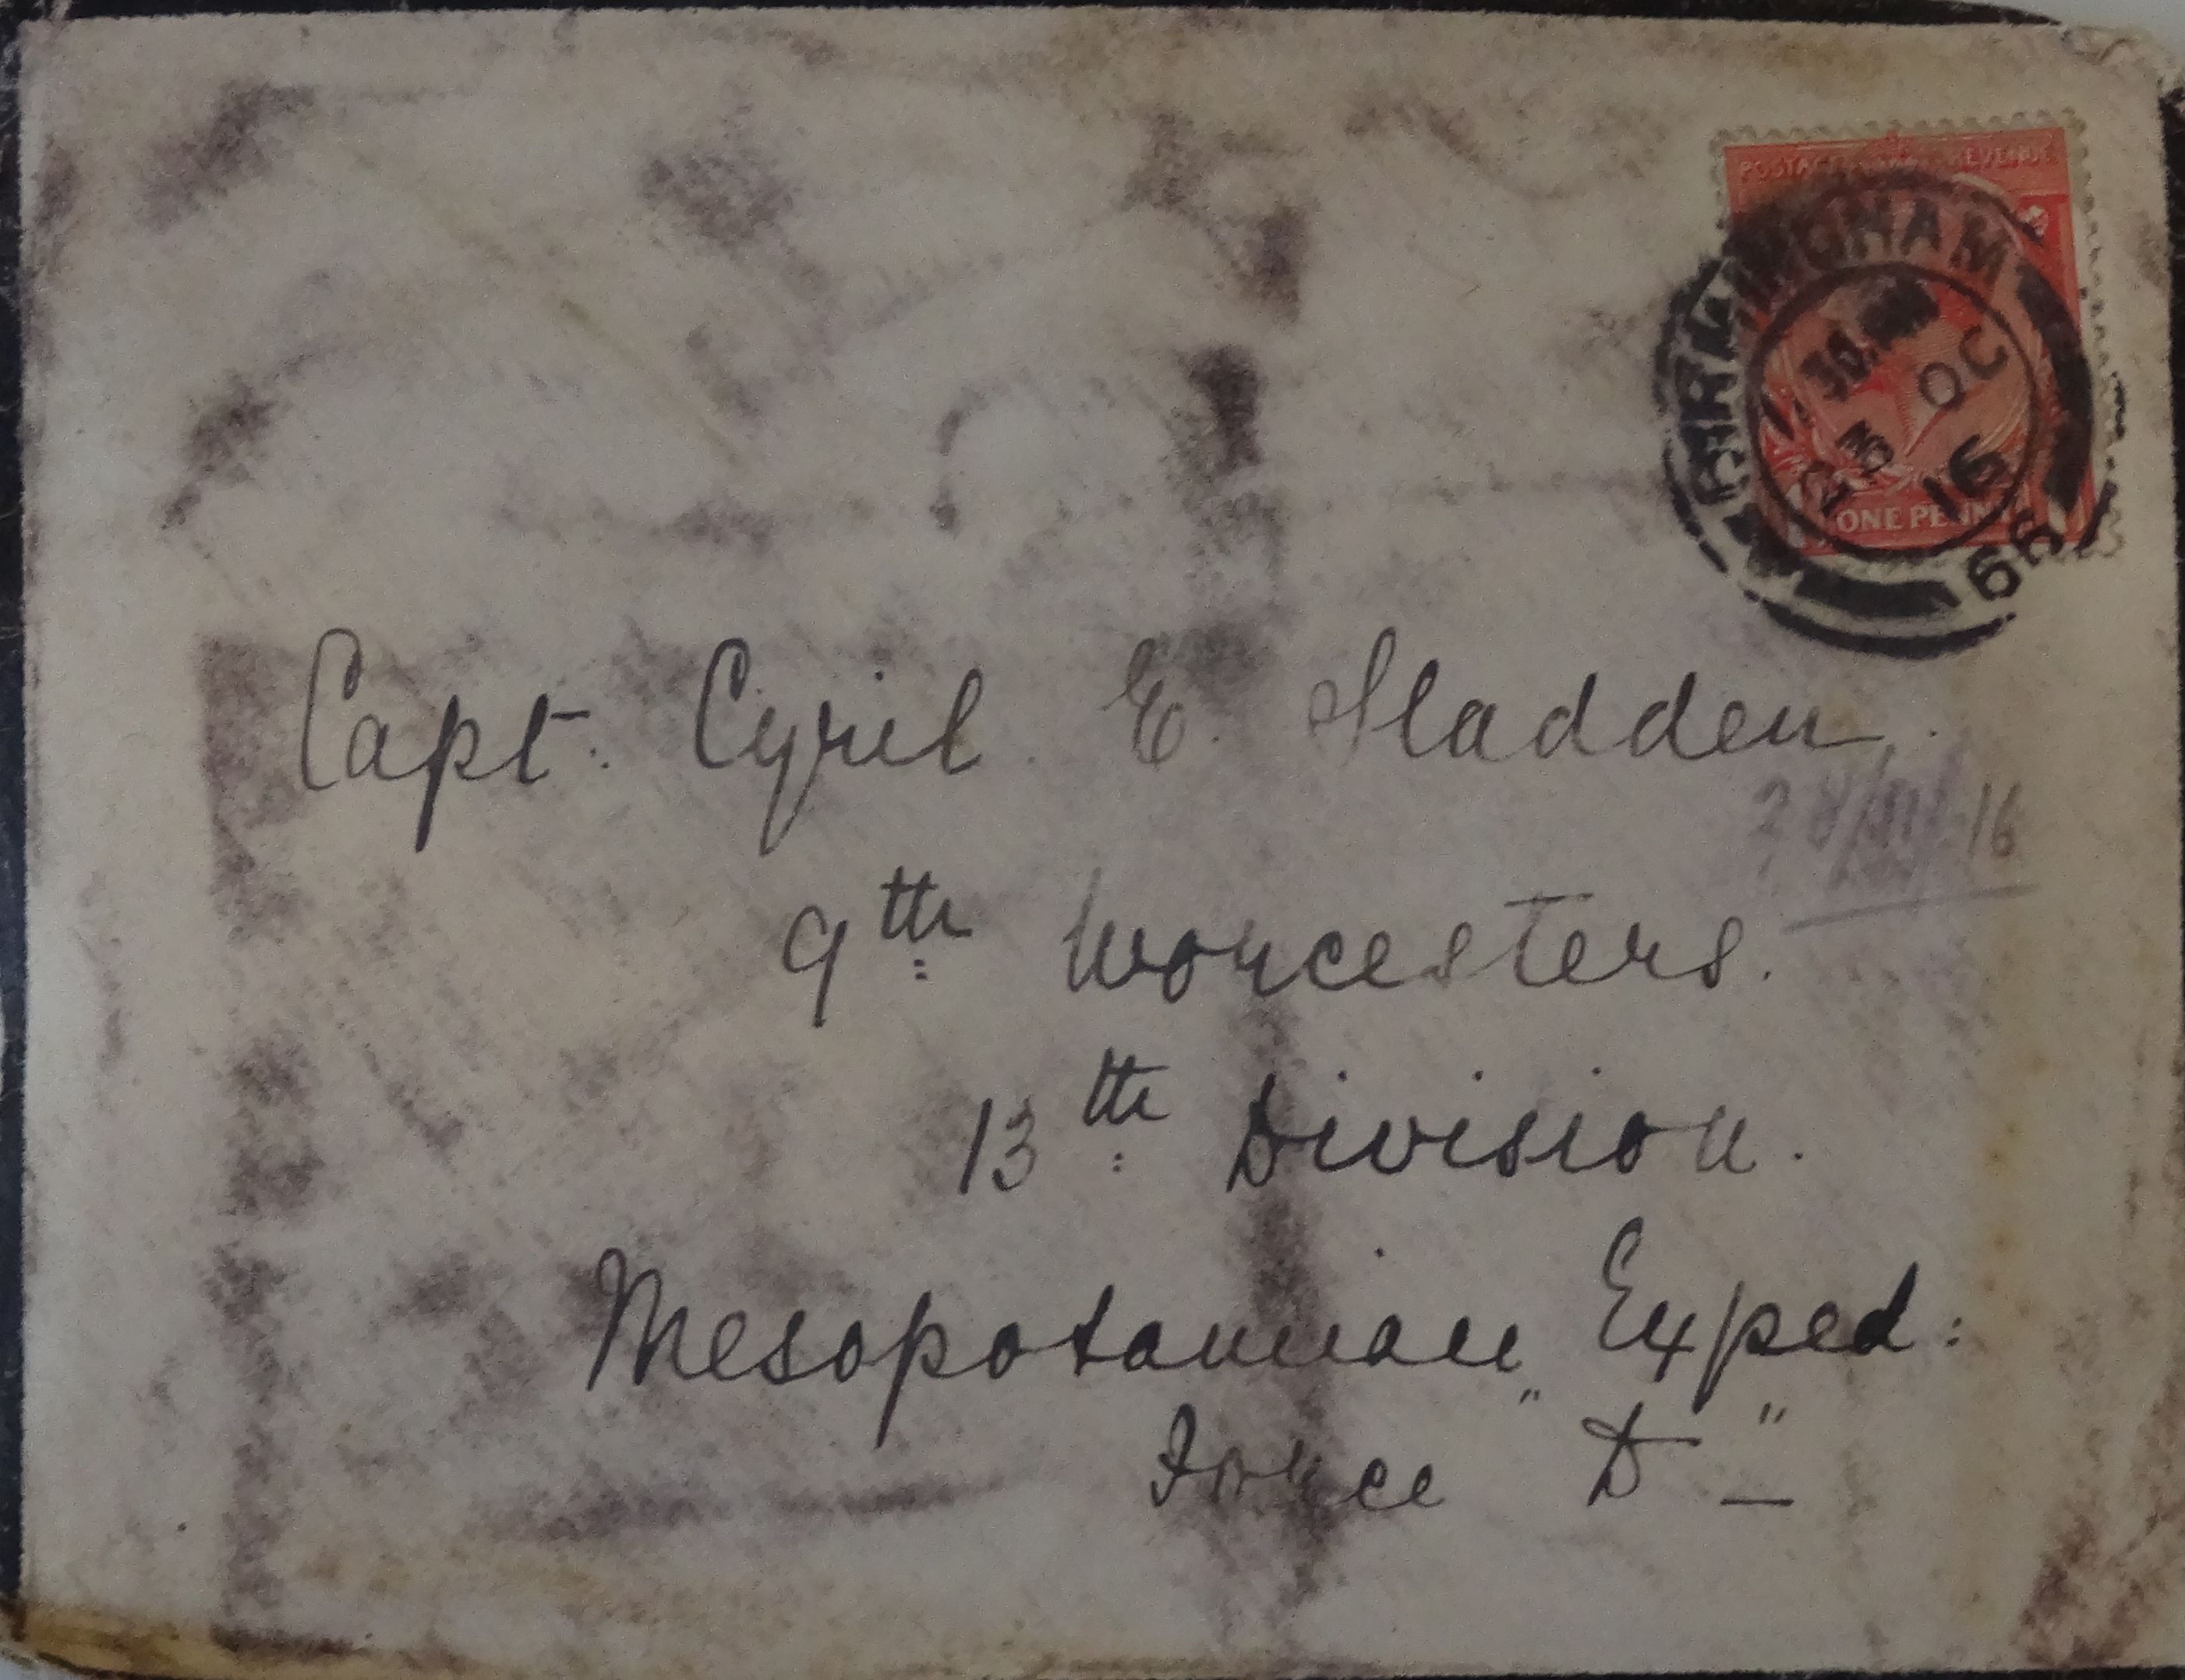 POSTAGE REVENUE
BIRMINGHAM
OC
16
ONE PENNY
Capt. Cyril E. Sladden.
16
9th Worcesters.
13th Division.
Mesopotamian Exped:
Force "D"